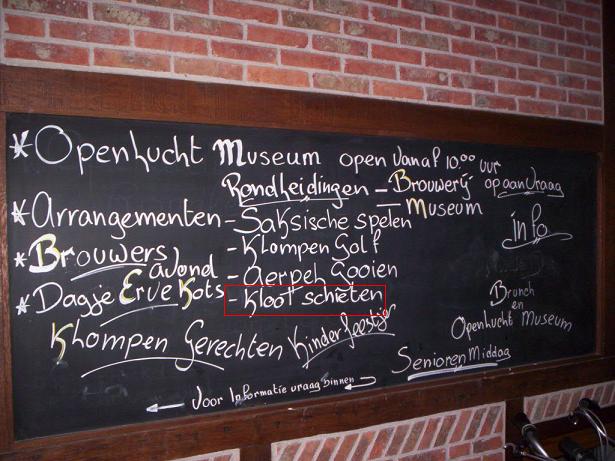 * Openlucht Museum open vanaf 10.00 uur
Rondleidingen - Brouwerij op aanvraag
- Museum
* Arrangementen - Saksische spelen
- Klompen Golf
* Brouwers avond
- Aerpel Gooien
* Dagje Erve Kots
- Kloot schieten
Klompen Gerechten Kinderfeestje
info
Brunch
en
Openlucht Museum
Senioren Middag
Voor Informatie vraag binnen